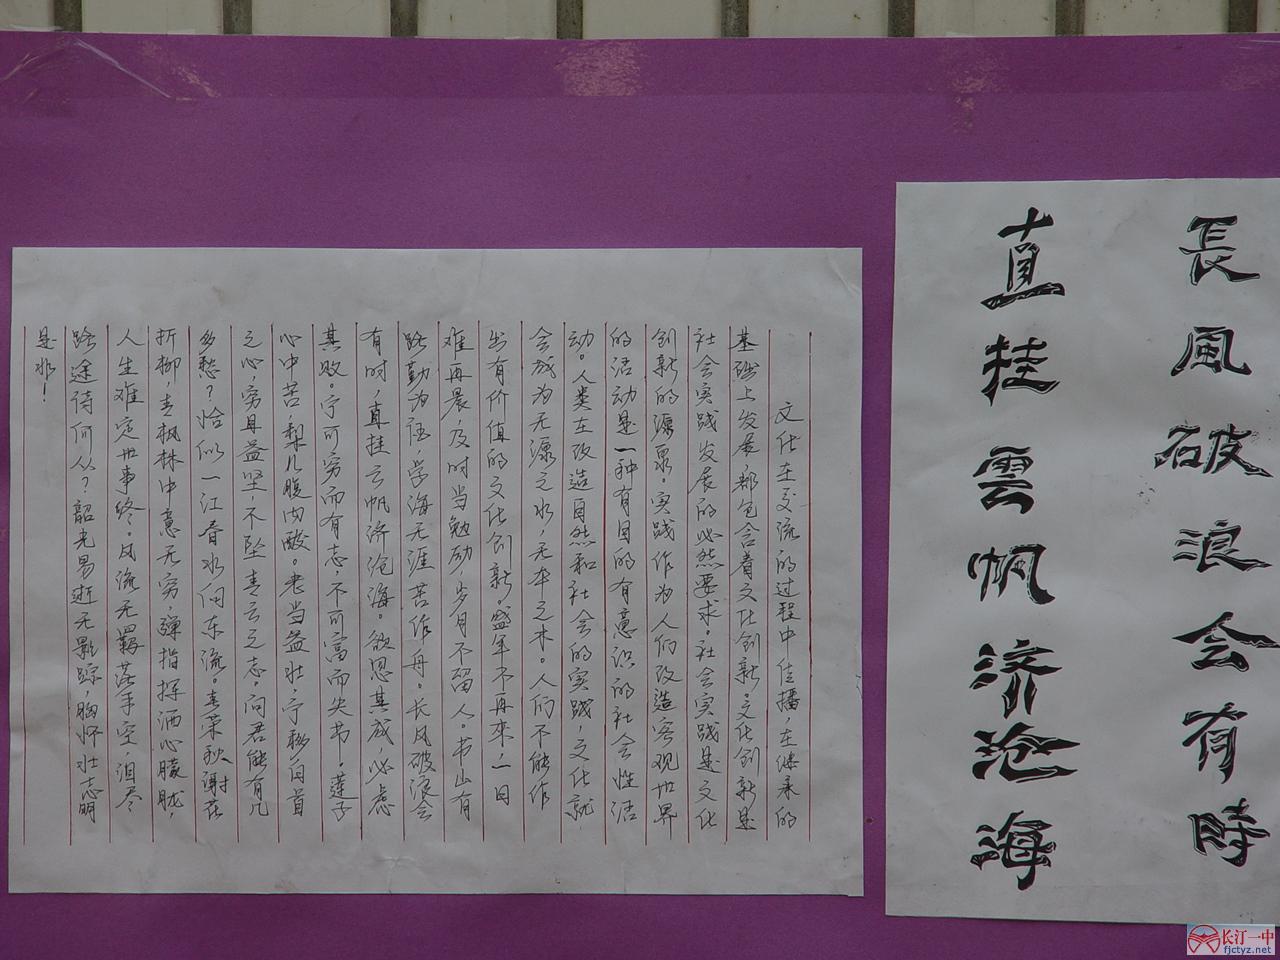 長風破浪会有時
直挂雲帆济沧海
文化在交流的过程中传播，在继承的
基础上发展，都包含着文化创新。文化创新是
社会实践发展的必然要求。社会实践是文化
创新的源泉。实践作为人们改造客观世界
的活动是一种有目的有意识的社会性活
动。人类在改造自然和社会的实践，文化就
会成为无源之水，无本之木。人们不能作
出有价值的文化创新。盛年不再来，一日
难再晨，及时当勉励，岁月不留人。书山有
路勤为径，学海无涯苦作舟。长风破浪会
有时，直挂云帆济沧海。欲思其成，必虑
其败。宁可穷而有志，不可富而失节。莲子
心中苦，梨儿腹内酸。老当益壮，宁移白首
之心，穷且益坚，不坠青云之志。问君能有几
多愁？恰似一江春水向东流。春荣秋谢花
折柳，青枫林中意无穷，弹指挥洒心朦胧，
人生难定世事终。风流无羁落手空，泪尽
路途待何从？韶光易逝无影踪，胸怀壮志明
是非！
长汀一中
fjctyz.net